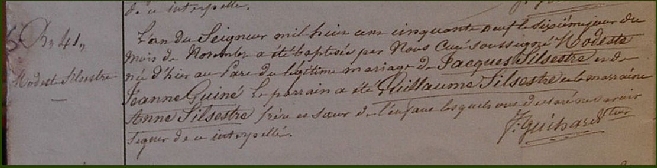 de ce interpellé.
No 41.
Modest Silsestre
L'an du Seigneur mil huit cent cinquante neuf le sixième jour du
mois de Novembre a été baptisée par Nous Curé soussigné Modeste
né d'hier au Parc du légitime mariage de Jacques Silsestre et de
Jeanne Guiné le parrain a été Guillaume Silsestre et la marraine
Anne Silsestre frère et sœur de l'enfant lesquels ont déclaré ne savoir
signer de ce interpellé.